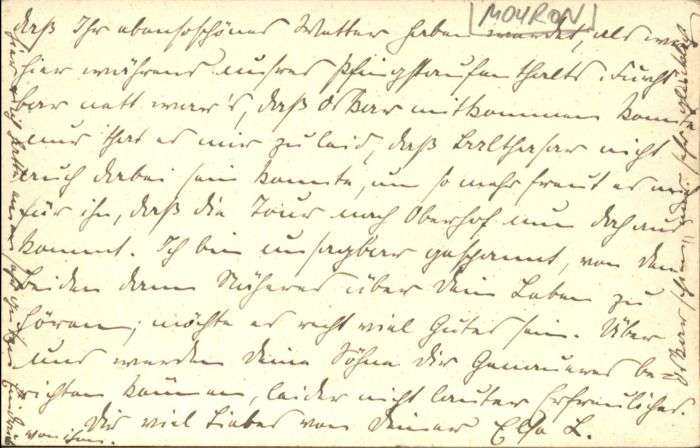 |MOURON|
daß Ihr ebensoschönes Wetter haben werdet, als wir
hier während unsres Pfingstaufenthalts. Furcht-
bar nett war's, daß Oskar mitkommen konnte
nur that es mir zu leid, daß Balthasar nicht
auch dabei sein konnte, um so mehr freut es mich
für ihn, daß die Tour nach Oberhof nun doch zustande
kommt. Ich bin unsagbar gespannt, von den
Beiden dann Näheres über Dein Leben zu
hören; möchte es recht viel Gutes sein. Über
uns werden Deine Söhne Dir Genaueres be-
richten können, leider nicht lauter Erfreuliches.
Dir viel Liebes von Deiner Elsa L.
von ihm.